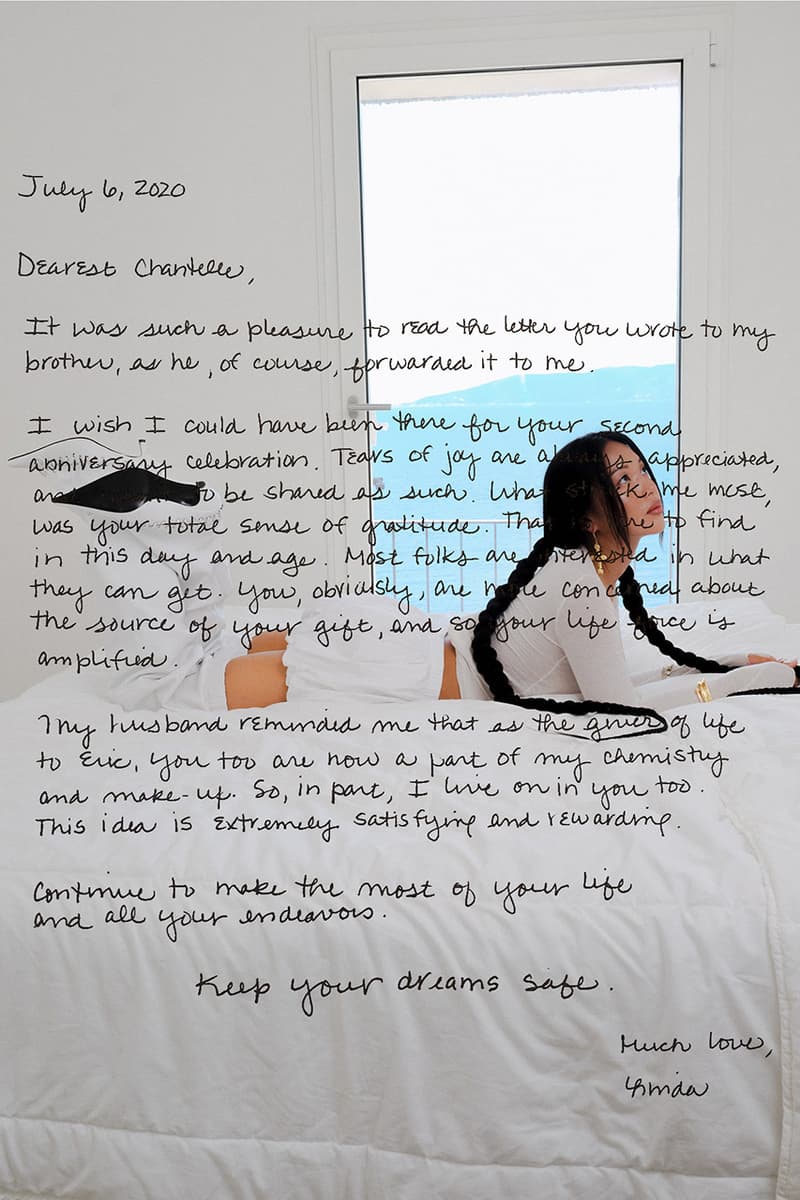 July 6, 2020
Dearest Chantelle,
It was such a pleasure to read the letter you wrote to my
brother, as he, of course, forwarded it to me.
I wish I could have been there for your second
anniversary celebration. Tears of joy are always appreciated,
to be shared as such. What struck me most,
was your total sense of gratitude. That is rare to find
in this day and age. Most folks are interested in what
they can get. You, obviously, are more concerned about
the source of your gift, and so your life force is
amplified.
My husband reminded me that as the giver of life
to Eric, you too are now a part of my chemistry
and make-up. So, in part, I live on in you too.
This idea is extremely satisfying and rewarding.
Continue to make the most of your life
and all your endeavors.
Keep your dreams safe.
Much love,